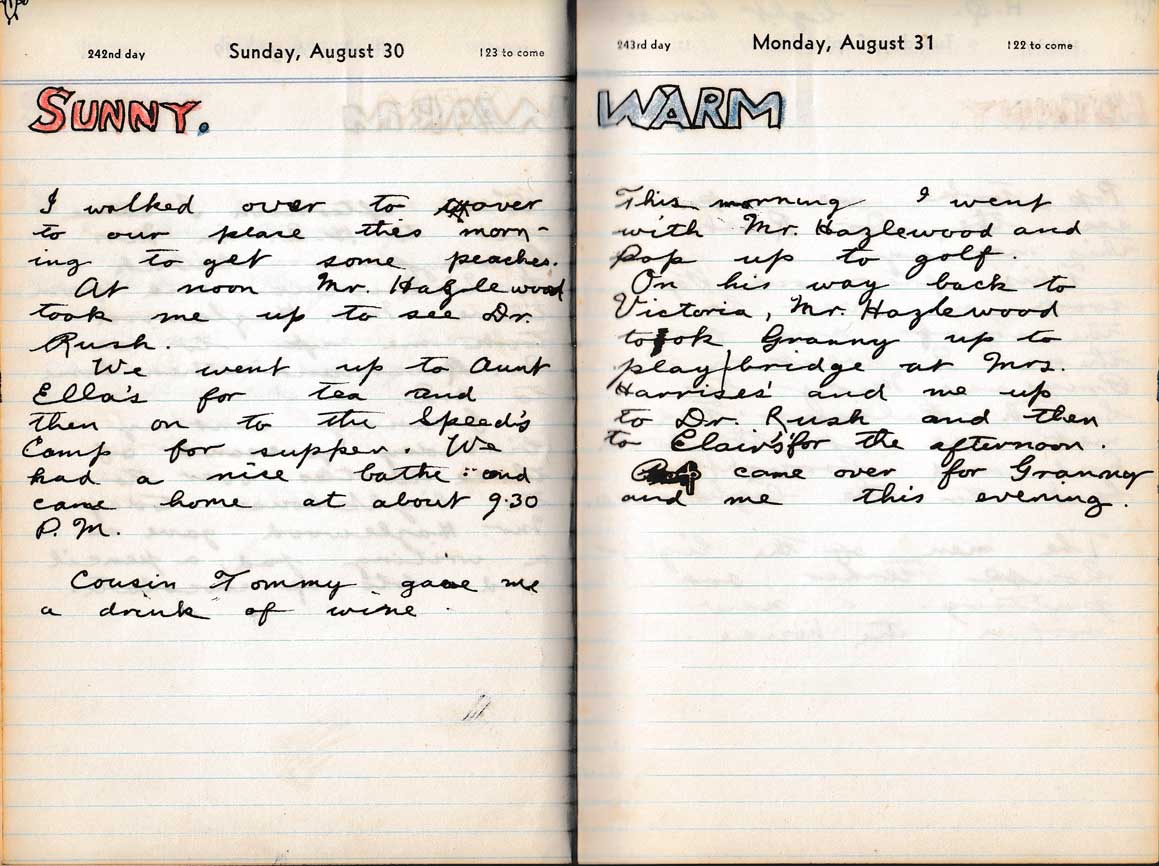 242nd day Sunday, August 30 123 to come
SUNNY.
I walked over to over
to our place this morn-
ing to get some peaches.
At noon Mr. Hazlewood
took me up to see Dr.
Rush.
We went up to Aunt
Ella's for tea and
then on to the Speed's
Camp for supper. We
had a nise bathe and
came home at about 9:30
P.M.
Cousin Tommy gave me
a drink of wine.
243rd day Monday, August 31 122 to come
WARM
This morning I went
with Mr. Hazlewood and
Pop up to golf.
On his way back to
Victoria, Mr. Hazlewood
took Granny up to
play bridge at Mrs.
Harrises' and me up
to Dr. Rush and then
to Elair's for the afternoon.
came over for Granny
and me this evening.